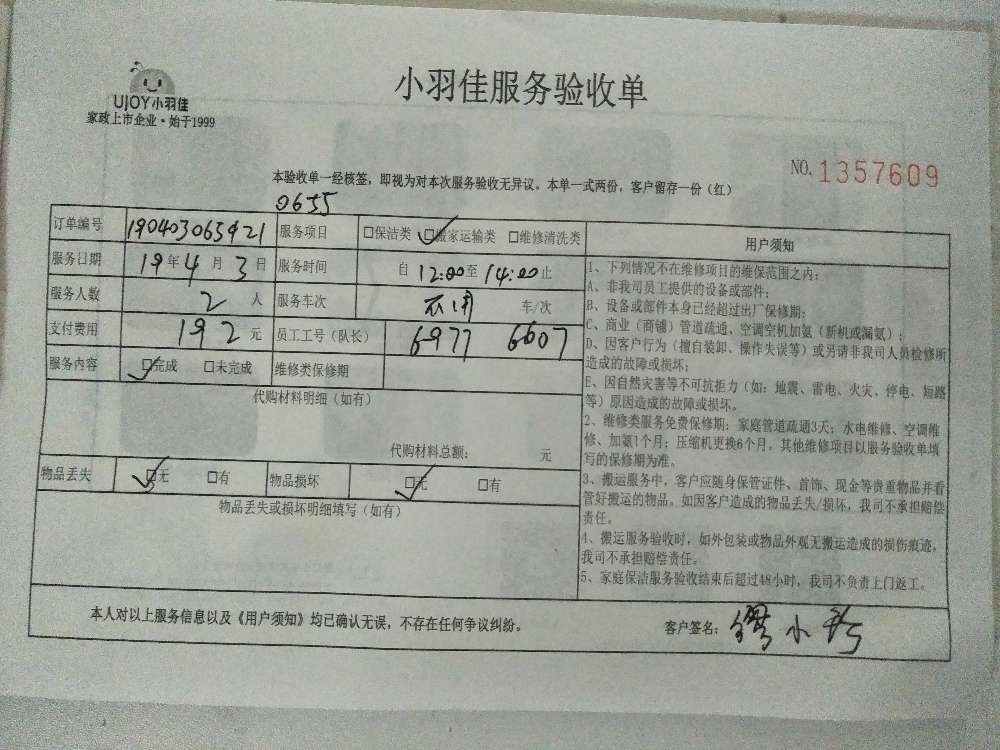 UJOY小羽佳
家政上市企业·始于1999
小羽佳服务验收单
NO.1357609
本验收单一经核签，即视为对本次服务验收无异议。本单一式两份，客户留存一份（红）
0655
订单编号 服务项目 □保洁类 □搬家运输类 □维修清洗类
服务日期 19年4月3日 服务时间 自12:00至14:00止
服务人数 2人 服务车次 车/次
支付费用 192元 员工工号（队长） 6977 6607
服务内容 □完成 □未完成 维修类保修期
代购材料明细（如有）
代购材料总额： 元
物品丢失 □无 □有 物品损坏 □无 □有
物品丢失或损坏明细填写（如有）
用户须知
1、下列情况不在维修项目的维保范围之内：
A、非我司员工提供的设备或部件；
B、设备或部件本身已经超过出厂保修期；
C、商业（商铺）管道疏通、空调空机加氨（新机或漏氨）；
D、因客户行为（擅自装卸、操作失误等）或另请非我司人员检修所
造成的故障或损坏；
E、因自然灾害等不可抗拒力（如：地震、雷电、火灾、停电、短路
等）原因造成的故障或损坏。
2、维修类服务免费保修期：家庭管道疏通3天；水电维修、空调维
修、加氨1个月；压缩机更换6个月。其他维修项目以服务验收单填
写的保修期为准。
3、搬运服务中，客户应随身保管证件、首饰、现金等贵重物品并看
管好搬运的物品。如因客户造成的物品丢失/损坏，我司不承担赔偿
责任。
4、搬运服务验收时，如外包装或物品外观无搬运造成的损伤痕迹，
我司不承担赔偿责任。
5、家庭保洁服务验收结束后超过48小时，我司不负责上门返工。
本人对以上服务信息以及《用户须知》均已确认无误，不存在任何争议纠纷。
客户签名：